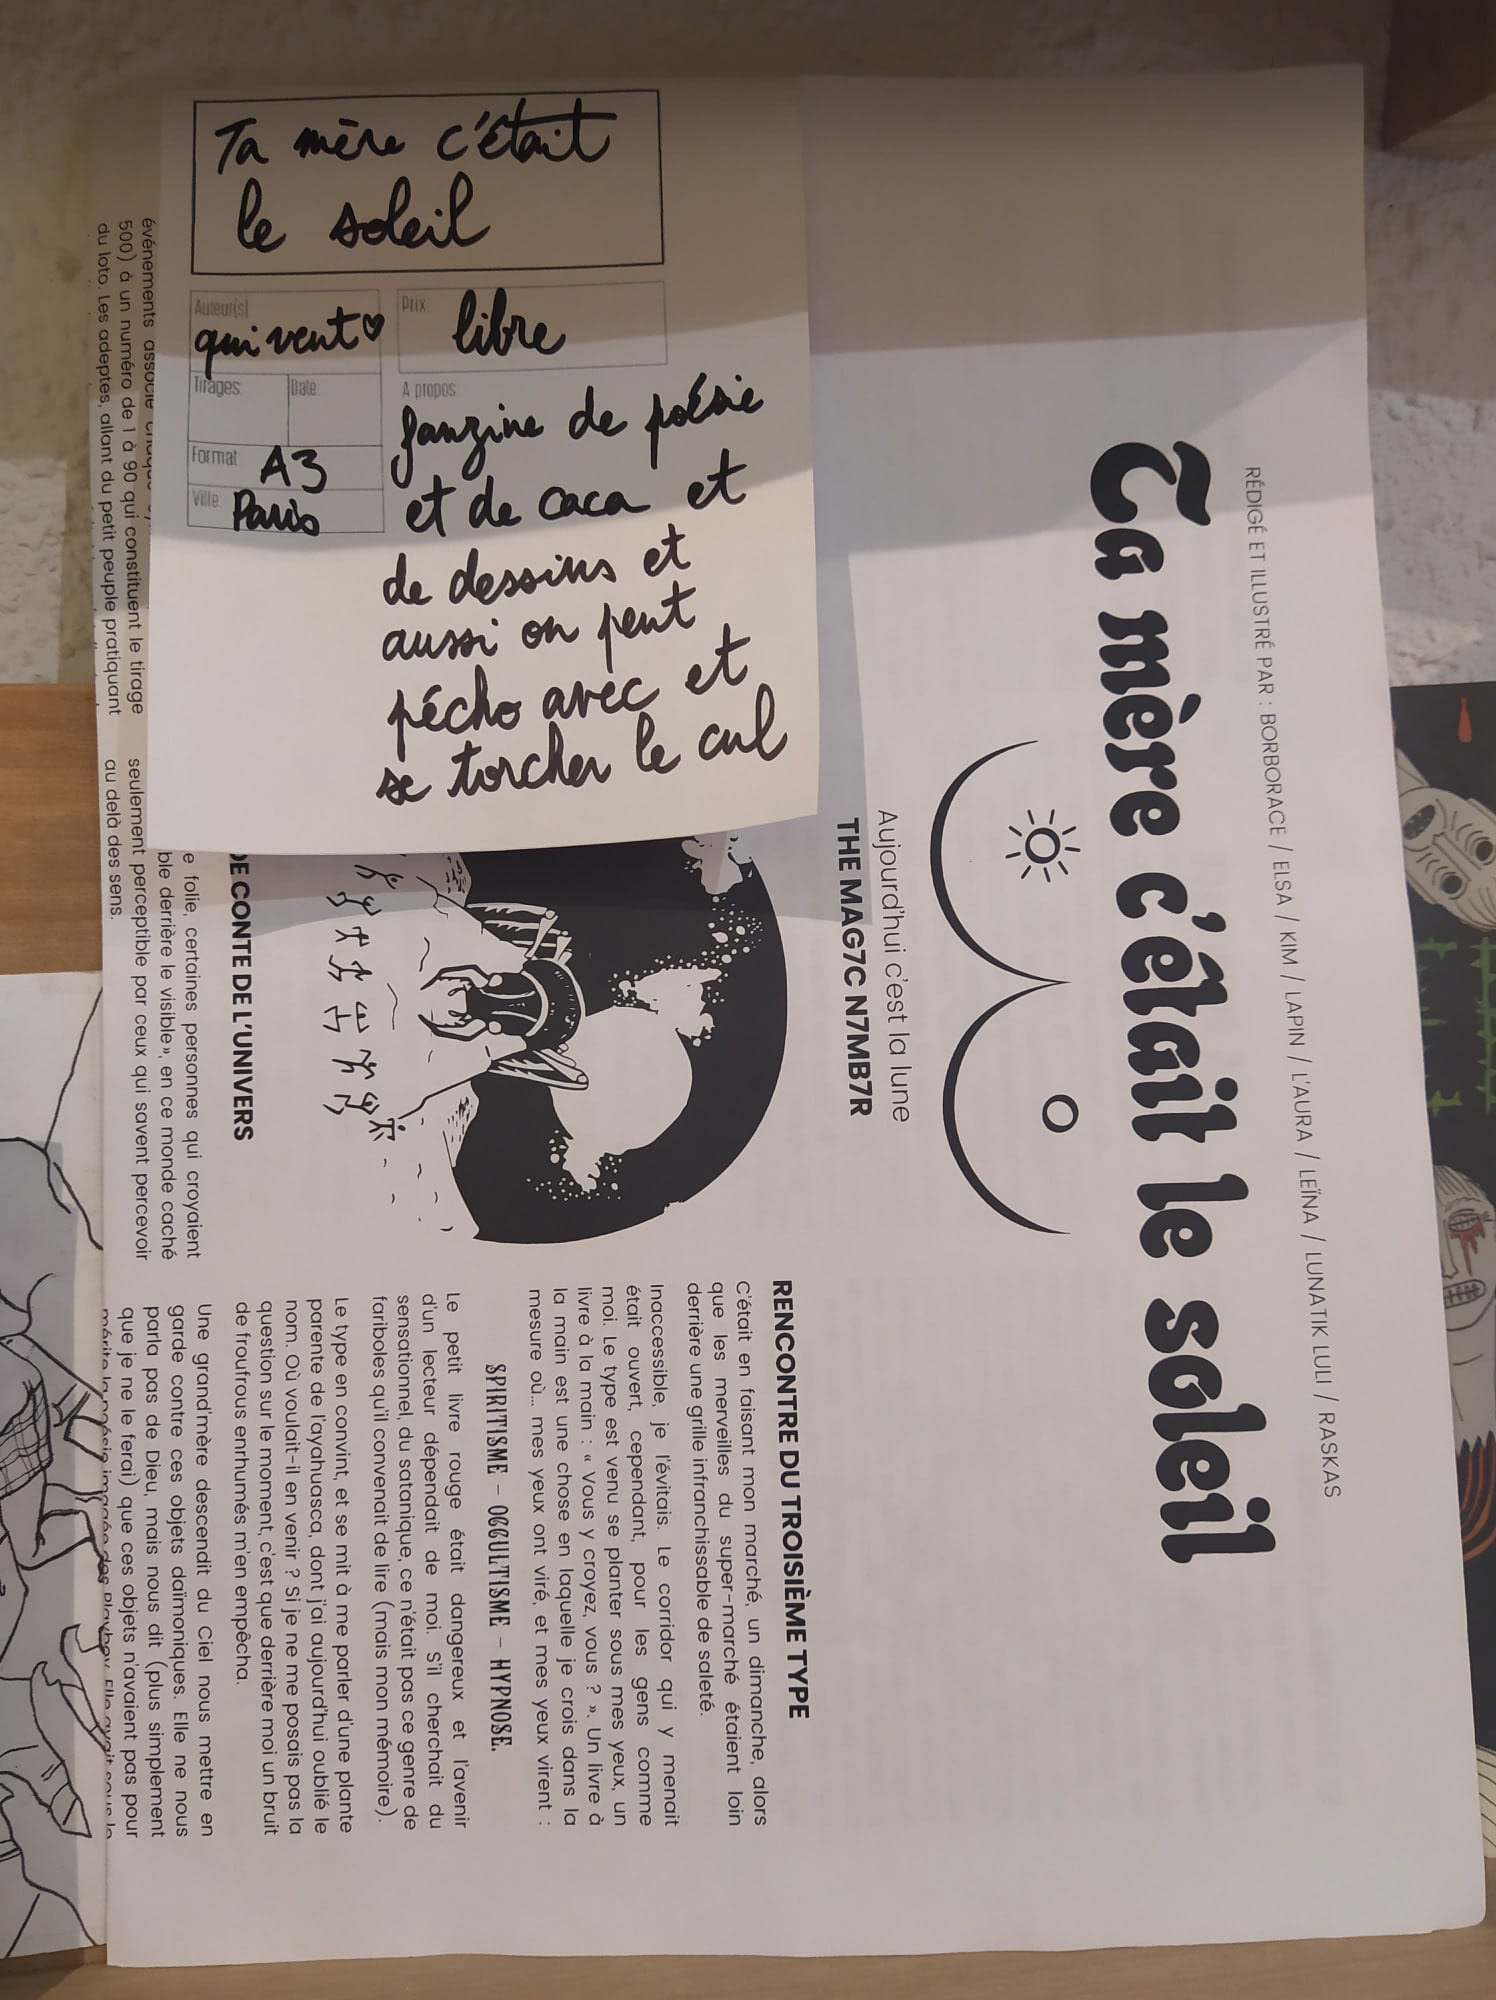 Ta mère c'était
le soleil
Auteur(s)
qui veut
Prix
libre
Tirages:
Date:
Format:
A3
Ville:
Paris
A propos:
fanzine de poésie
et de caca et
de dessins et
aussi on peut
pécho avec et
se torcher le cul
RÉDIGÉ ET ILLUSTRÉ PAR : BORBORACE / ELSA / KIM / LAPIN / L'AURA / LEÏNA / LUNATIK LULI / RASKAS
Ta mère c'était le soleil
Aujourd'hui c'est la lune
THE MAG7C N7MB7R
événements associe
500) à un numéro de 1 à 90 qui constituent le tirage
du loto. Les adeptes, allant du petit peuple pratiquant
DE CONTE DE L'UNIVERS
e folie, certaines personnes qui croyaient
ble derrière le visible», en ce monde caché
seulement perceptible par ceux qui savent percevoir
au delà des sens.
RENCONTRE DU TROISIÈME TYPE
C'était en faisant mon marché, un dimanche, alors
que les merveilles du super-marché étaient loin
derrière une grille infranchissable de saleté.
Inaccessible, je l'évitais. Le corridor qui y menait
était ouvert, cependant, pour les gens comme
moi. Le type est venu se planter sous mes yeux, un
livre à la main : « Vous y croyez, vous ? ». Un livre à
la main est une chose en laquelle je crois dans la
mesure où... mes yeux ont viré, et mes yeux virent :
SPIRITISME – OCCULTISME – HYPNOSE.
Le petit livre rouge était dangereux et l'avenir
d'un lecteur dépendait de moi. S'il cherchait du
sensationnel, du satanique, ce n'était pas ce genre de
fariboles qu'il convenait de lire (mais mon mémoire).
Le type en convint, et se mit à me parler d'une plante
parente de l'ayahuasca, dont j'ai aujourd'hui oublié le
nom. Où voulait-il en venir ? Si je ne me posais pas la
question sur le moment, c'est que derrière moi un bruit
de froufrous enrhumés m'en empêcha.
Une grand'mère descendit du Ciel nous mettre en
garde contre ces objets daïmoniques. Elle ne nous
parla pas de Dieu, mais nous dit (plus simplement
que je ne le ferai) que ces objets n'avaient pas pour